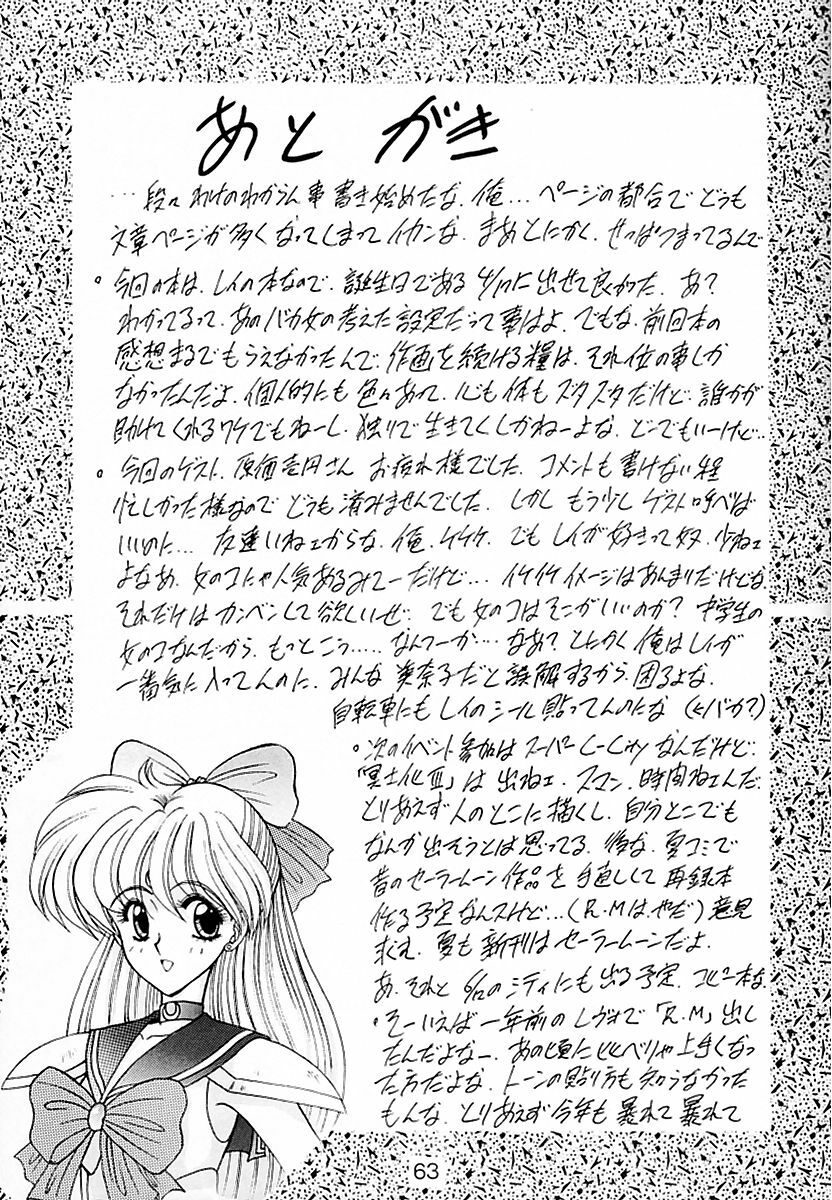 あとがき
…段々わけのわからん事書き始めたな、俺…ページの都合でどうも
文章ページが多くなってしまってイカンな。まあとにかく、せっぱつまってるんで
。今回の本は、レイの本なので、誕生日である4/17に出せて良かった。あ?
わかってるって、あのバカ女の考えた設定だって事はよ。でもな、前回本の
感想まるでもらえなかったんで、作画を続ける糧は、それ位の事しか
なかったんだよ。個人的にも色々あって、心も体もズタズタだけど、誰かが
助けてくれるワケでもねーし、独りで生きてくしかねーよな。どーでもいーけど‥
。今回のゲスト、原価壱円さん お疲れ様でした。コメントも書けない程
忙しかった様なので どうも済みませんでした。しかし もう少し ゲスト呼べば
いいのに… 友達いねェからな、俺。ケケケ。でも レイが好きって奴、少ねェ
よなあ。女のコにゃ人気あるみてーだけど… イケイケイメージはあんまりだけどな
それだけはカンベンして欲しいぜ。でも女のコはそこがいいのか? 中学生の
女のコなんだから、もっとこう‥‥‥なんつーか…なあ? とにかく俺はレイが
一番気に入ってんのに、みんな美奈子だと誤解するから、困るよな。
自転車にもレイのシール貼ってんのにな(←バカ?)
。次のイベント参加はスーパーC-Cityなんだけど、
「冥土化Ⅲ」は出ねェ。スマン、時間ねェんだ。
とりあえず人のとこに描くし、自分とこでも
なんか出そうとは思ってる。 な。夏コミで
昔のセーラームーン作品を手直しして再録本
作る予定なんスけど…(R.Mはやだ)意見
求む。夏も新刊はセーラームーンだよ。
あ、それと 6/10のシティにも出る予定。コピー本な
。そーいえば一年前のレヴォで「R.M」出し
たんだよなー。あの頃に比べりゃ上手くなっ
た方だよな。トーンの貼り方も知らなかった
もんな。とりあえず今年も暴れて暴れて
63